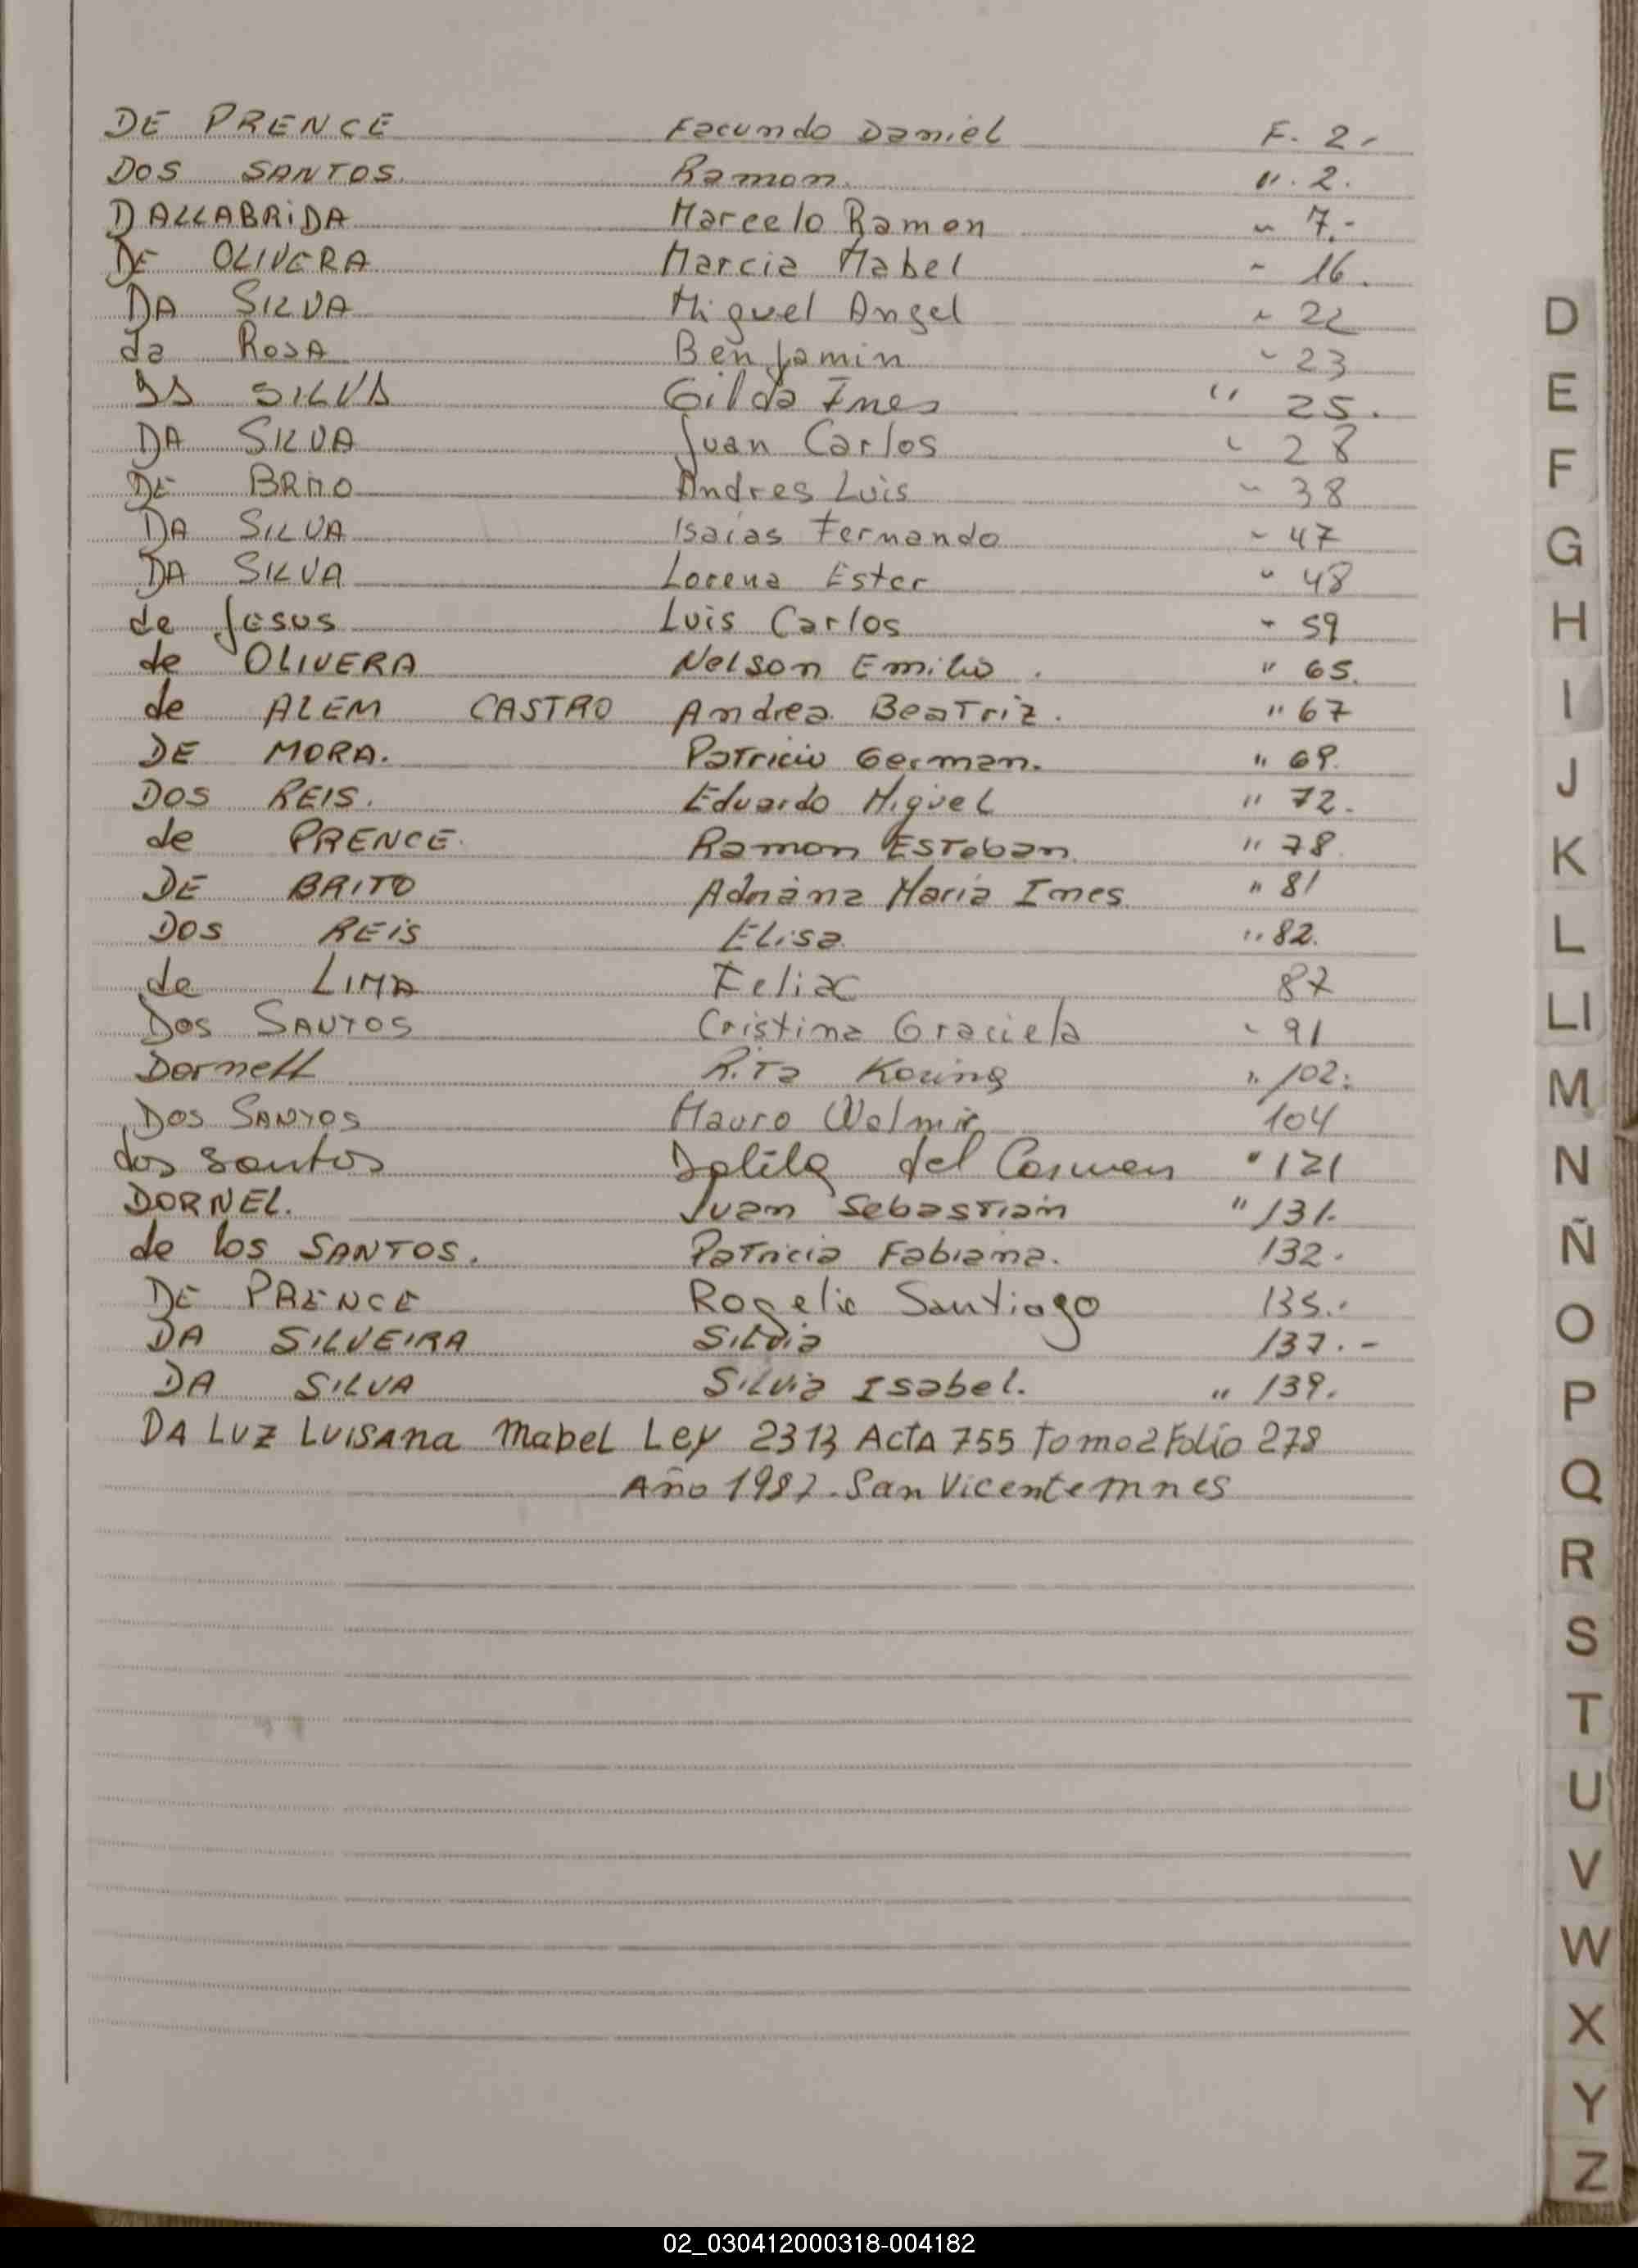 DE PRENCE Facundo Daniel F. 2.-
DOS SANTOS. Ramon. ". 2.
DALLABRiDA Marcelo Ramon " 7.-
DE OLIVERA Marcia Mabel " 16.
DA SILVA Miguel Angel " 22
da ROSA Benjamin " 23
DA SILVA Gilda Ines " 25.
DA SILVA Juan Carlos " 28
DE BRITO Andres Luis " 38
DA SILVA Isaías Fernando " 47
DA SILVA Lorena Ester " 48
de JESUS Luis Carlos " 59
de OLIVERA Nelson Emilio. " 65.
de ALEM CASTRO Andrea BeaTriz. " 67
DE MORA. Patricio German. " 69.
DOS REIS. Eduardo Miguel " 72.
de PRENCE. Ramon ESTeban. " 78.
DE BRITO Adriana Maria Ines. " 81
DOS REiS Elisa. " 82.
de LIMA Felix 87
Dos SANTOS Cristina Graciela " 91
Dornell RiTa " 102.
DOS SANTOS Mauro Walmir 104
dos santos Dalila del Carmen " 121
DORNEL. Juan SebasTian " 131.
de los SANTOS. PaTricia Fabiana. 132.
DE PRENCE Rogelio Santiago 135..
DA SILVEIRA Silvia 137.-
DA SILVA Silvia Isabel. " 139.
DA LUZ LUISAna mabel Ley 2313 ActA 755 tomo 2 Folio 278
Año 1987. San Vicente mnes
D
E
F
G
H
I
J
K
L
Ll
M
N
Ñ
O
P
Q
R
S
T
U
V
W
X
Y
Z
02_030412000318-004182